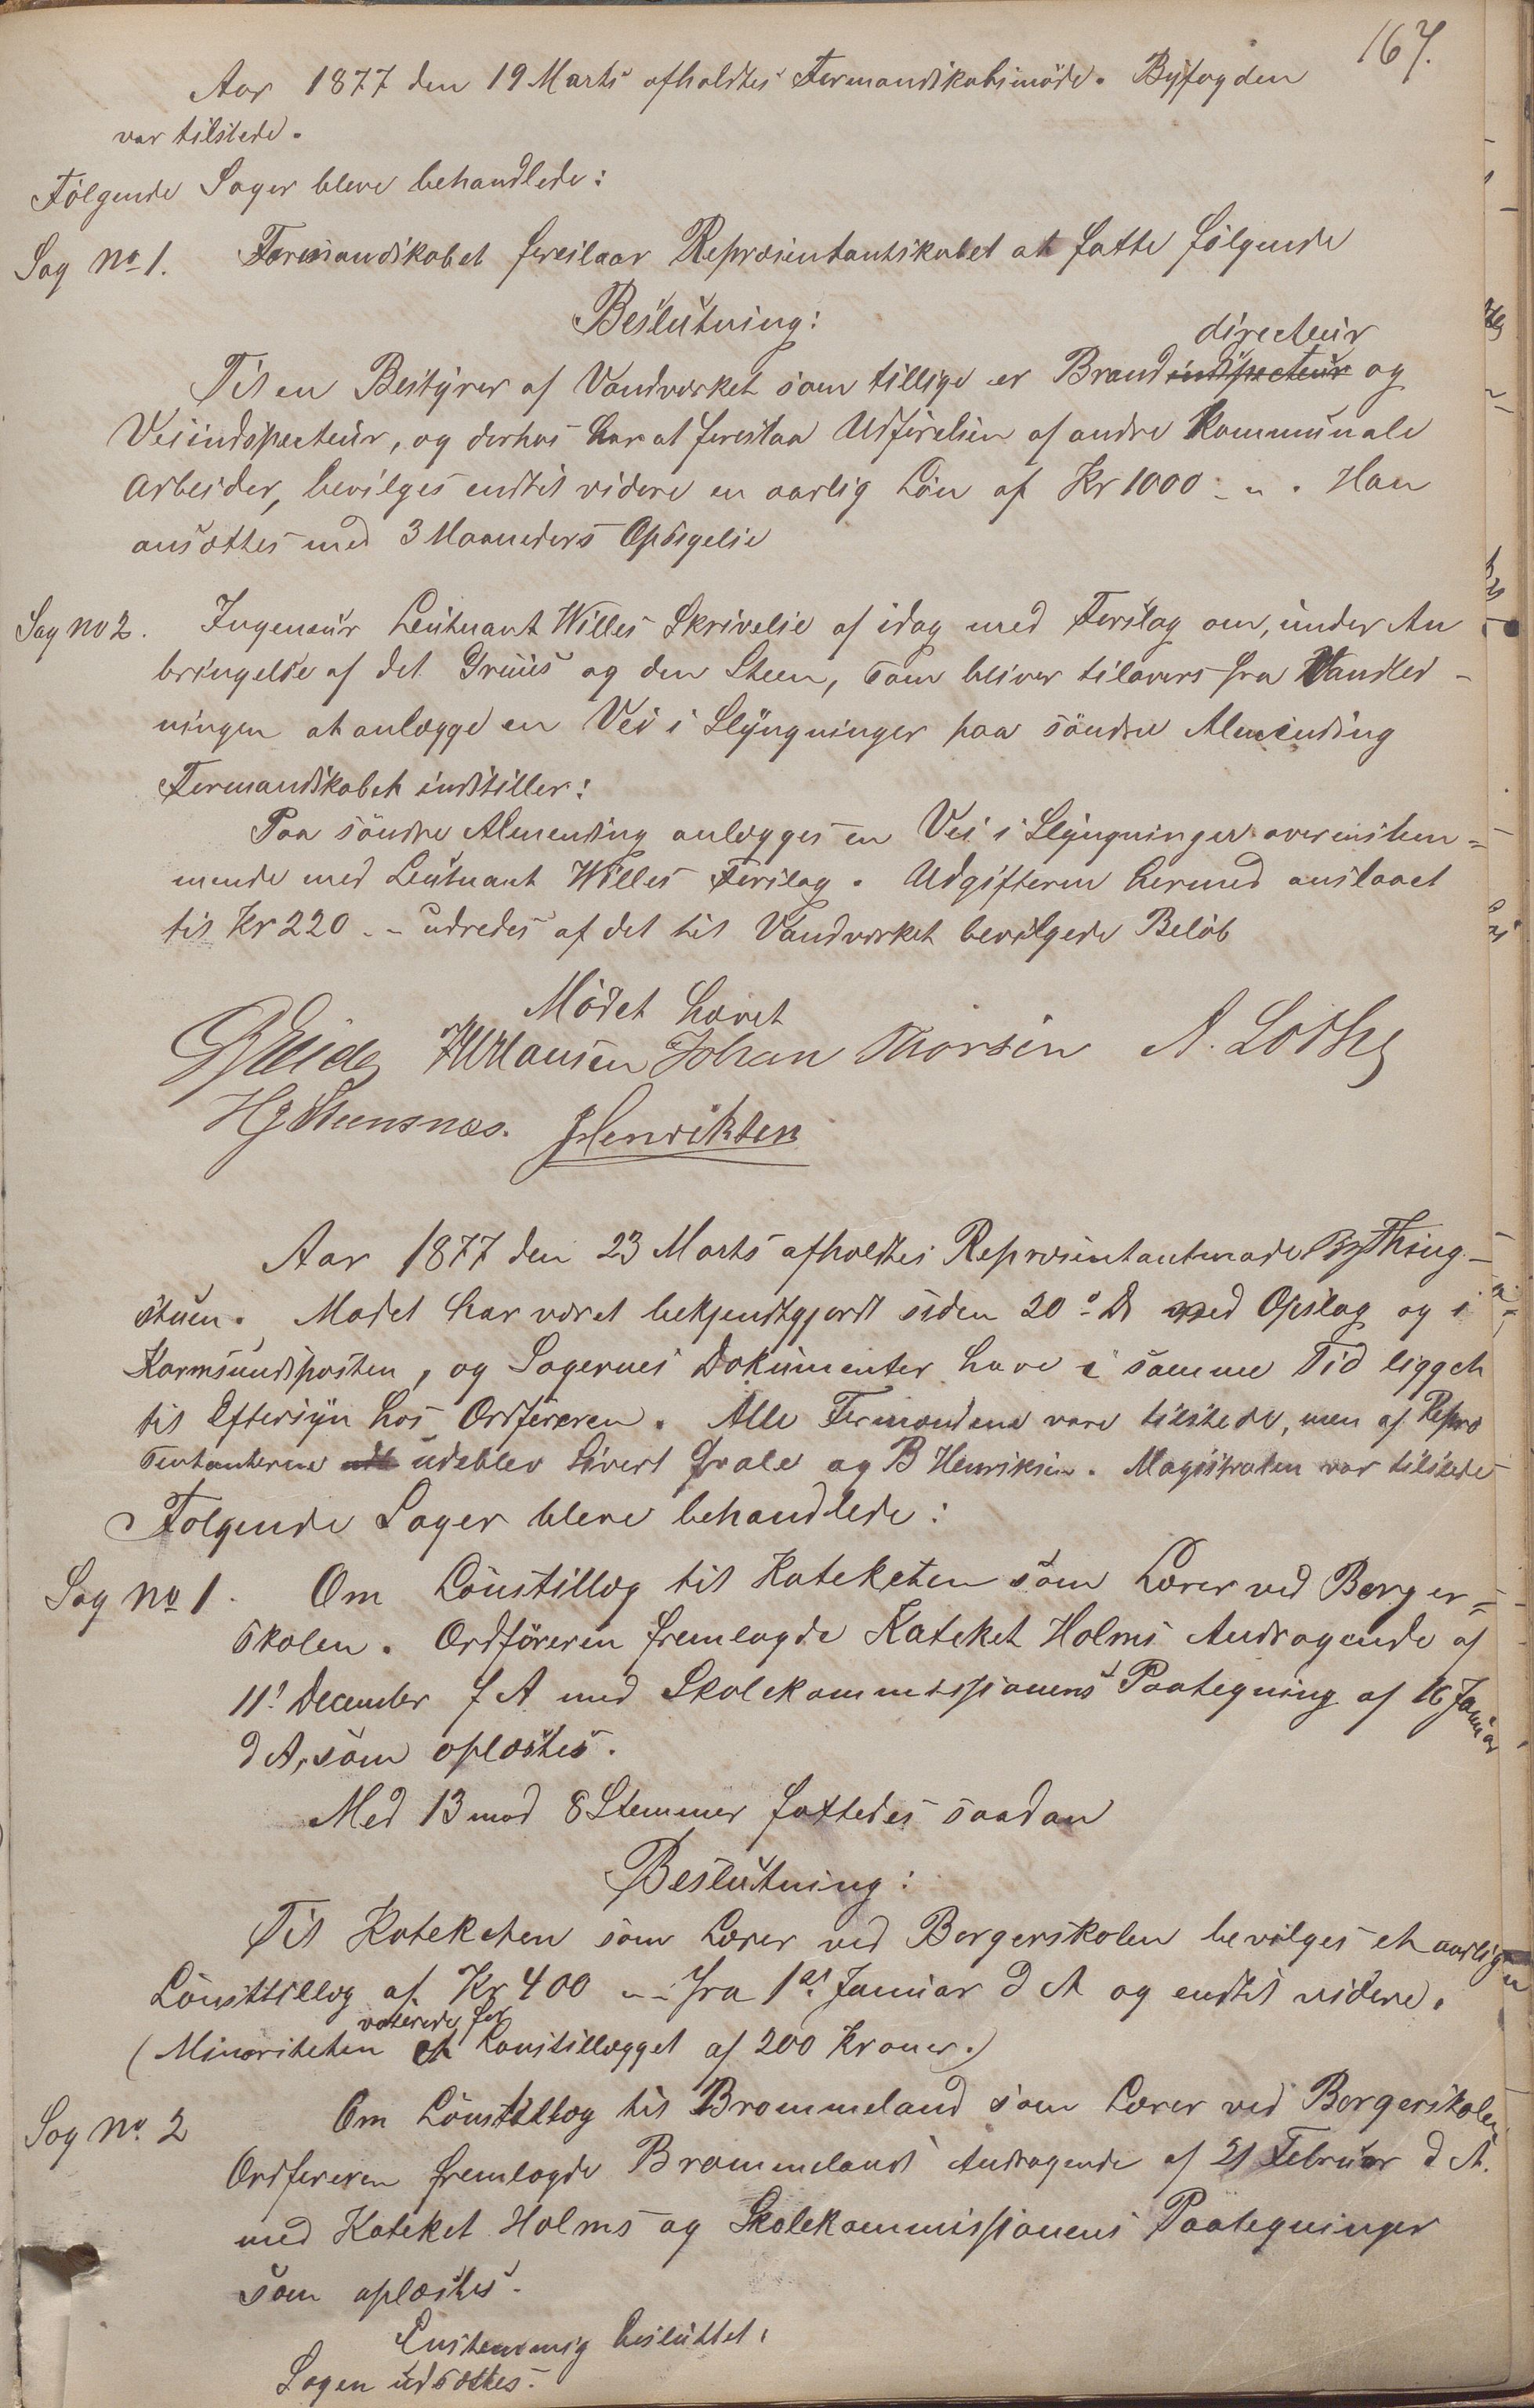 167.
Aar 1877 den 19 Marts afholdtes Formandskabsmöde. Byfogden
var tilstede.
Følgende Sager bleve behandlede:
Sag No 1. Formandskabet foreslaar Repræsentantskabet at fatte følgende
Beslutning:
directeur
Til en Bestyrer af Vandværket som tillige er Brandindspecteur og
Veiindspecteur, og derhos har at forestaa Udførelsen af andre kommunale
Arbeider, bevilges indtil videre en aarlig Løn af Kr 1000 - " . Han
ansættes med 3 Maaneders Opsigelse
Sag No 2. Ingeneur Leutnant Willes Skrivelse af idag med Forslag om, under An
bringelse af det Gruus og den Steen, som bliver tilovers fra Vandled-
ningen at anlægge en Vei i Slyngninger paa söndre Almending
Formandskabet indstiller:
Paa söndre Almending anlægges en Vei i Slyngninger overenstem=
mende med Leutnant Willes Forslag. Udgifterne hermed anslaaet
til Kr 220 - - udredes af det til Vandværket bevilgede Beløb
Mödet hævet
Eide Hansen Johan Thorsen A. Lothe
HJ Steensnæs. Henriksen
Aar 1877 den 23 Marts afholdtes Repræsentantmøde Thing-
stuen. Mødet har været bekjendtgjordt siden 20de Ds ved Opslag og i
Karmsundsposten, og Sagernes Dokumenter have i samme Tid ligget
til Eftersyn hos Ordføreren. Alle Formændene vare tilstede, men af Repræ
sentanterne udeblev Sivert Grale og B Henriksen. Magistraten var tilstede
Følgende Sager bleve behandlede:
Sag No 1. Om Lönstillæg til Kateketen som Lærer ved Borger=
skolen. Ordföreren fremlagde Kateket Holms Andragende af
11. December f A med Skolekommissionens Paategning af 16 Januar
d A, som oplæstes.
Med 13 mod 8 Stemmer fattedes saadan
Beslutning:
Til Kateketen som Lærer ved Borgerskolen bevilges et aarlig
Lönstillæg af Kr 400 - - fra 1st Januar d A og indtil videre.
voterede for
(Minoriteten et Lønstillægget af 200 Kroner.)
Sag No. 2 Om Lönstillæg til Brommeland som Lærer ved Borgerskolen
Ordføreren fremlagde Brommelands Andragende af 21 Februar d A.
med Kateket Holms og Skolekommissionens Paategninger
som oplæstes.
Enstemmig besluttet:
Sagen udsættes.